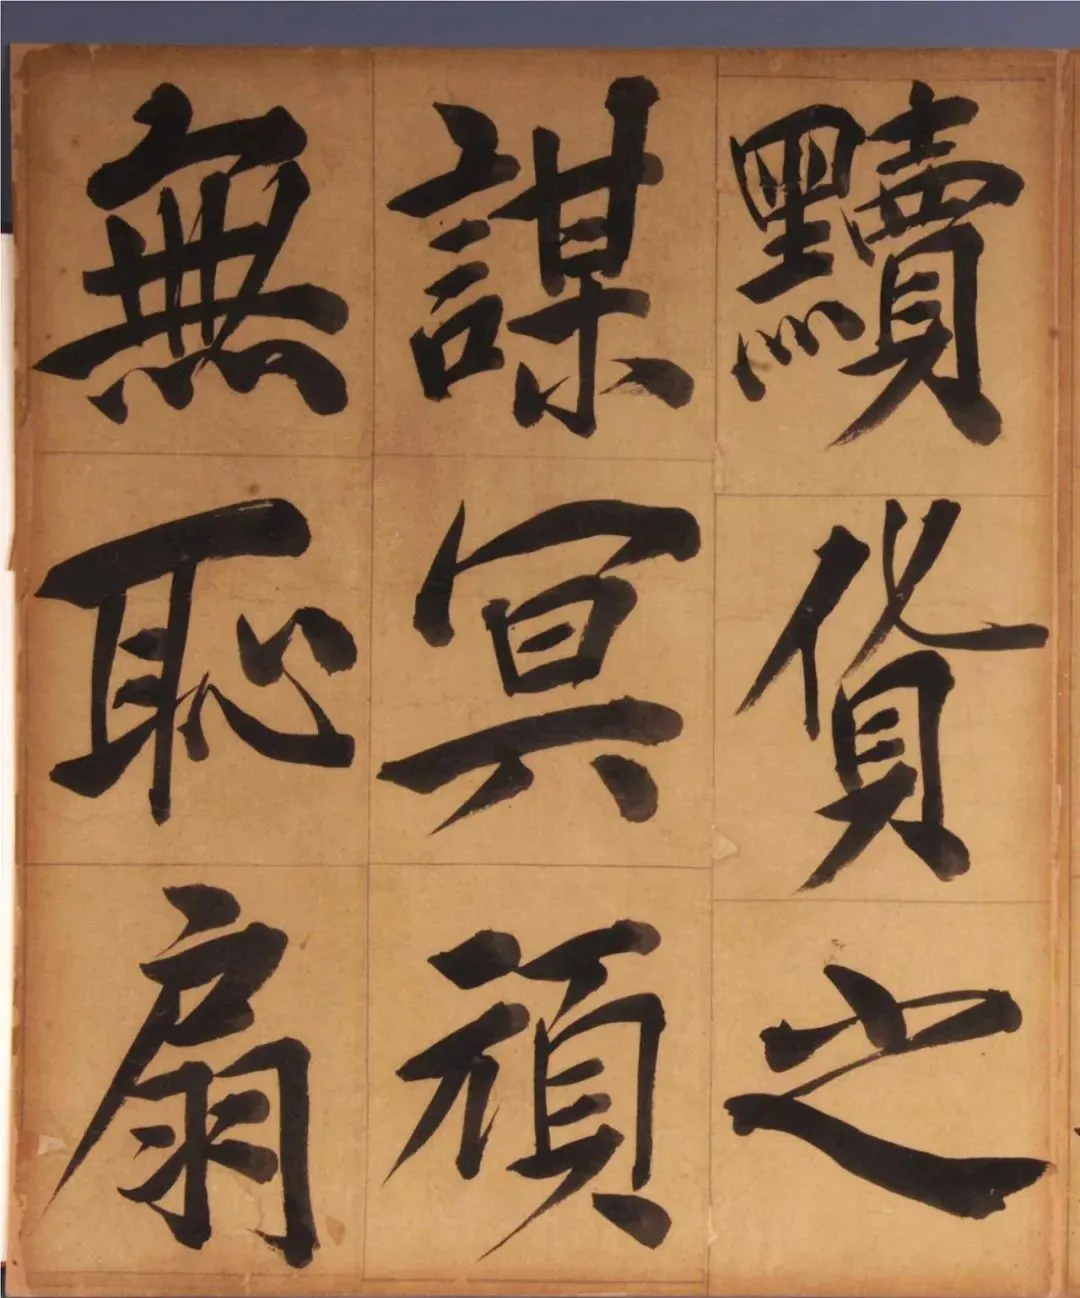 黷貨之
謀冥頑
無恥扇